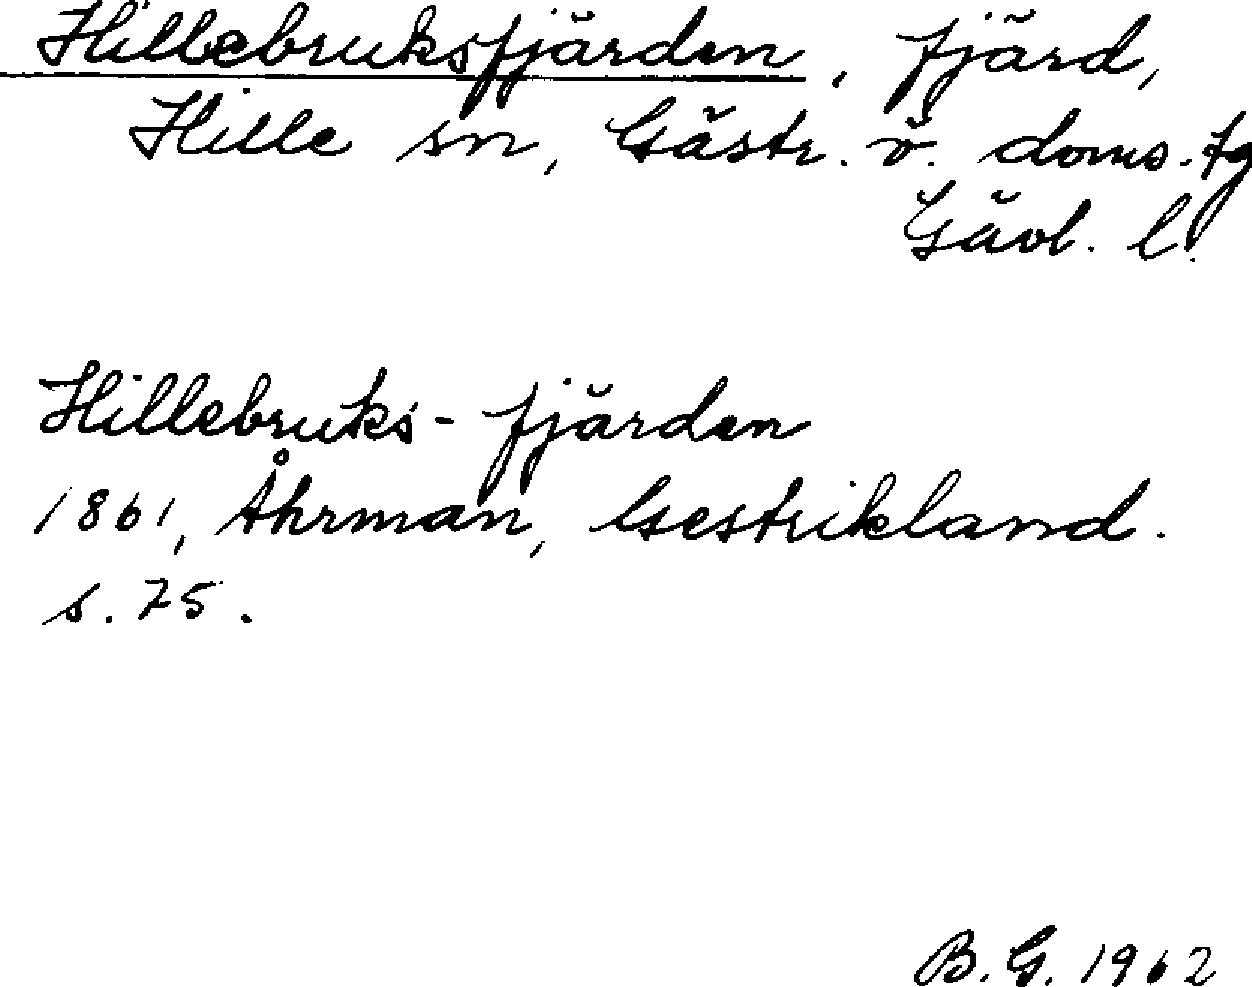 Hillebruksfjärden, fjärd,
Hille sn, Gästr. ö. doms.tg
Gävl. l.
Hillebruks-fjärden
1861, Åhrman, Gestrikland.
s. 75.
B. G. 1962